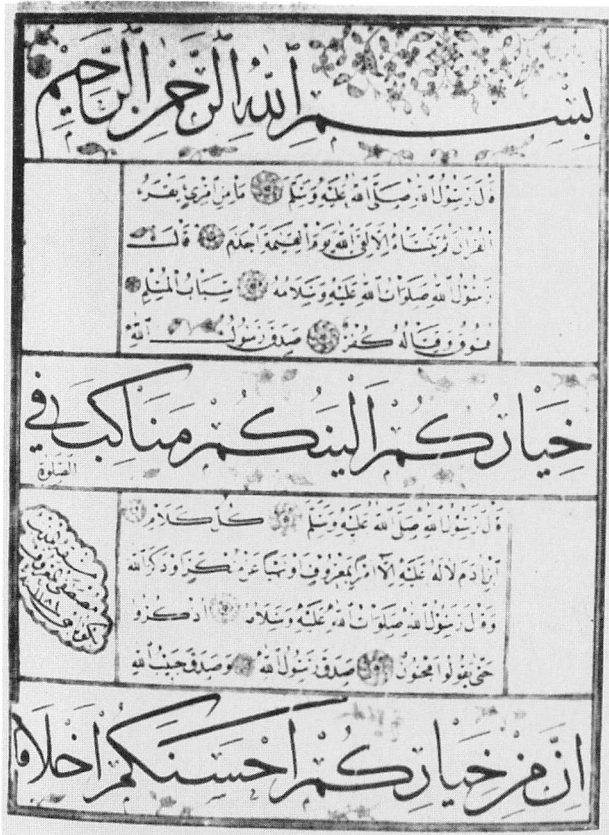 بِسْمِ اللهِ الرَّحْمٰنِ الرَّحِيمِ
قال رَسُوْلُ الله صَلَّى اللهُ عَلَيْهِ وَسَلَّمَ مَا مِنِ امْرِئٍ يَقْرَءُ
القران ثم ينساه الا لقى الله يوم القيمة اجذم قال
رسول الله صلوات الله عليه وسلامه سباب المسلم
فسوق وقتاله كفر صدق رسول الله
خِيَارُكُمْ اَلْيَنُكُمْ مَنَاكِبَ فِي
الصلوة
قال رسول الله صلى الله عليه وسلم كل كلام
ابن ادم لا له عليه الا امر بمعروف او نهيا عن منكر او ذكر الله
وقال رسول الله صلوات الله عليه وسلامه اذكروا
حتى يقولوا مجنون صدق رسول الله وصدق حبيب الله
اِنَّ مِنْ خِيَارِكُمْ اَحْسَنَكُمْ اَخْلَاقًا